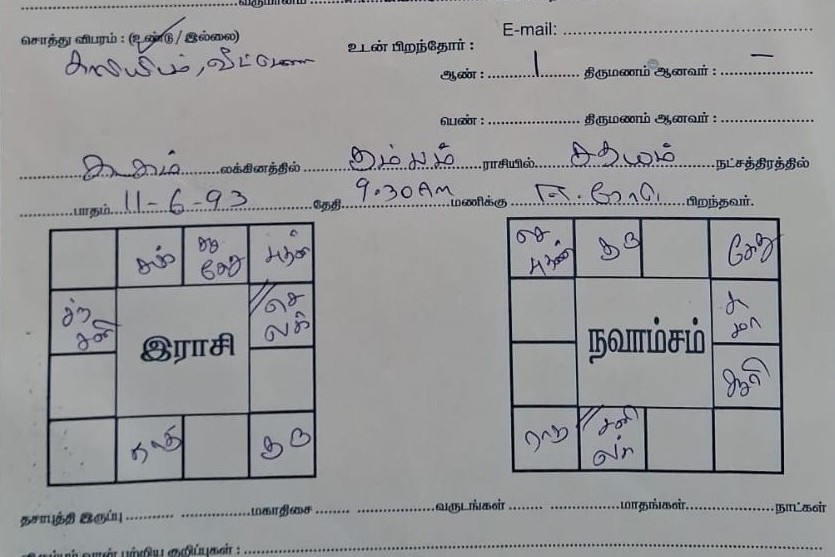 சொத்து விபரம் : (உண்டு / இல்லை)
E-mail:
உடன் பிறந்தோர் :
ஆண் : 1 திருமணம் ஆனவர் : —
பெண் : திருமணம் ஆனவர் :
கடகம் லக்கினத்தில் கும்பம் ராசியில் சதயம் நட்சத்திரத்தில்
பாதம் 11-6-93 தேதி 9.30AM மணிக்கு பிறந்தவர்.
சுக் சூ கேது புதன்
சந் சனி செ லக்
இராசி
ராகு குரு
செ புதன் குரு கேது
சு மா
நவாம்சம்
சூரி
ராகு சனி லக்
தசாபுத்தி இருப்பு மகாதிசை வருடங்கள் மாதங்கள் நாட்கள்